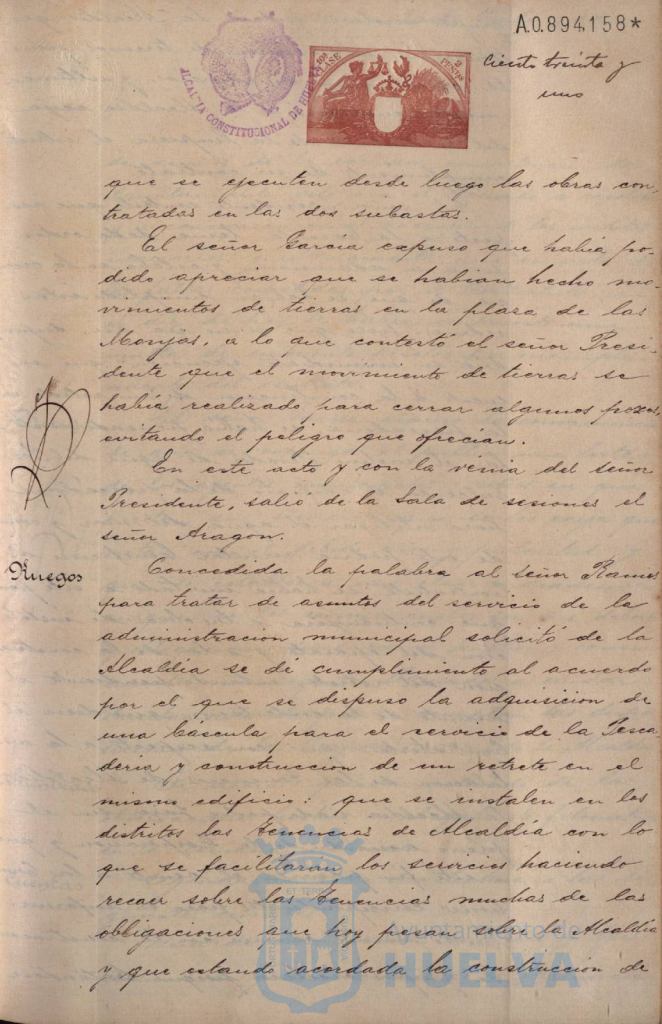 A.0.894.158*
ALCALDIA CONSTITUCIONAL DE HUELVA
10ª CLASE
2 PESETAS
Ciento treinta y
uno
que se ejecuten desde luego las obras con-
tratadas en las dos subastas.
El señor García expuso que había po-
dido apreciar que se habian hecho mo-
vimientos de tierras en la plaza de las
Monjas, a lo que contestó el señor Presi-
dente que el movimiento de tierras se
había realizado para cerrar algunos pozos,
evitando el peligro que ofrecian.
En este acto y con la venia del señor
Presidente, salió de la Sala de sesiones el
señor Aragon.
Ruegos
Concedida la palabra al señor Ramos
para tratar de asuntos del servicio de la
administracion municipal solicitó de la
Alcaldía se dé cumplimiento al acuerdo
por el que se dispuso la adquisicion de
una báscula para el servicio de la Pesca-
dería y construccion de un retrete en el
mismo edificio: que se instalen en los
distritos las Tenencias de Alcaldía con lo
que se facilitaran los servicios haciendo
recaer sobre las Tenencias muchas de las
obligaciones que hoy pesan sobre la Alcaldía
y que estando acordada la construccion de
Ayuntamiento de
HUELVA